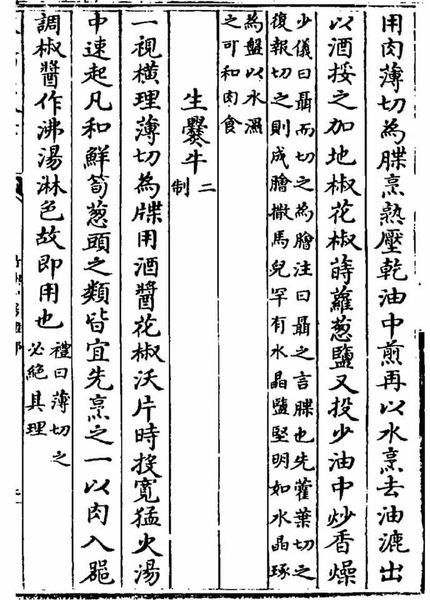 用肉薄切為牒烹熟壓乾油中煎再以水烹去油漉出
以酒挼之加地椒花椒蒔蘿葱鹽又投少油中炒香燥
少儀曰聶而切之為膾注曰聶之言牒也先藿葉切之
復報切之則成膾撒馬兒罕有水晶鹽堅明如水晶琢
為盤以水濕
之可和肉食
生爨牛二制
一視橫理薄切為牒用酒醬花椒沃片時投寬猛火湯
中速起凡和鮮筍葱頭之類皆宜先烹之一以肉入器
調椒醬作沸湯淋色故即用也禮曰薄切之
必絕其理